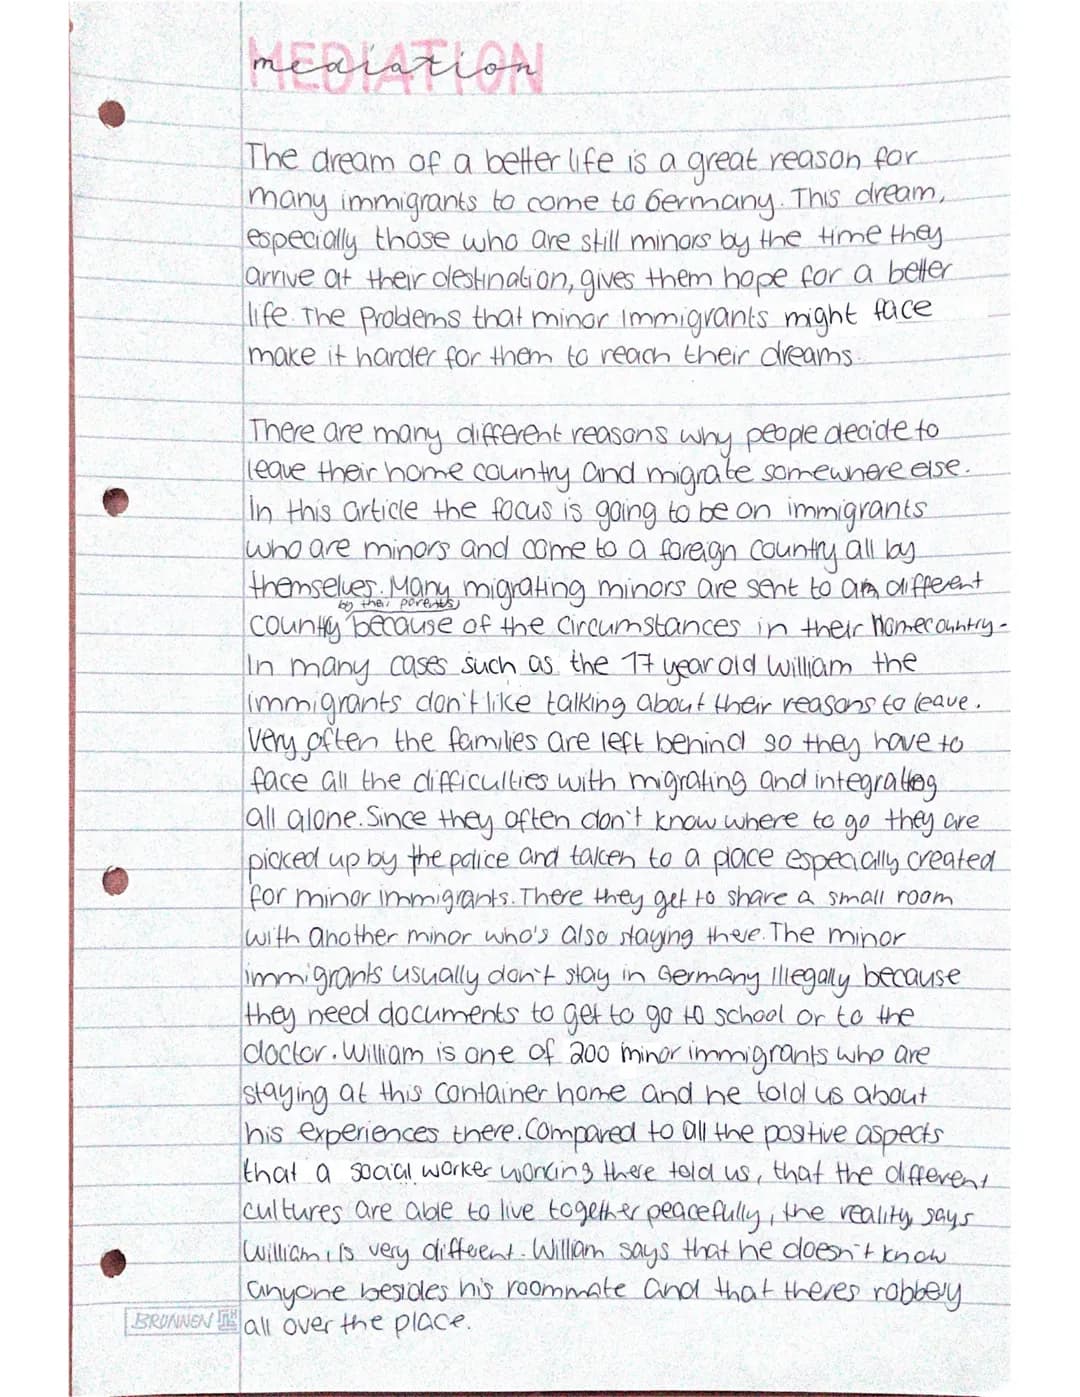 MEDIATION
mediation
The dream of a better life is a great reason for
many immigrants to come to Germany. This dream,
especially those who are still minors by the time they
arrive at their destination, gives them hope for a better
life. The problems that minor immigrants might face
make it harder for them to reach their dreams.
There are many different reasons why people decide to
leave their home country and migrate somewhere else.
In this article the focus is going to be on immigrants
who are minors and come to a foreign country all by
themselves. Many migrating minors are sent to a different
by their parents
country because of the circumstances in their homecountry.
In many cases such as the 17 year old William the
immigrants don't like talking about their reasons to leave.
Very often the families are left behind so they have to
face all the difficulties with migrating and integrating
all alone. Since they often don't know where to go they are
picked up by the police and taken to a place especially created
for minor immigrants. There they get to share a small room
with another minor who's also staying there. The minor
immigrants usually don't stay in Germany illegally because
they need documents to get to go to school or to the
doctor. William is one of 200 minor immigrants who are
staying at this container home and he told us about
his experiences there. Compared to all the positive aspects
that a social worker working there told us, that the different
cultures are able to live together peacefully, the reality, says
William, is very different. William says that he doesn't know
anyone besides his roommate and that theres robbery
all over the place.
BRUNNEN